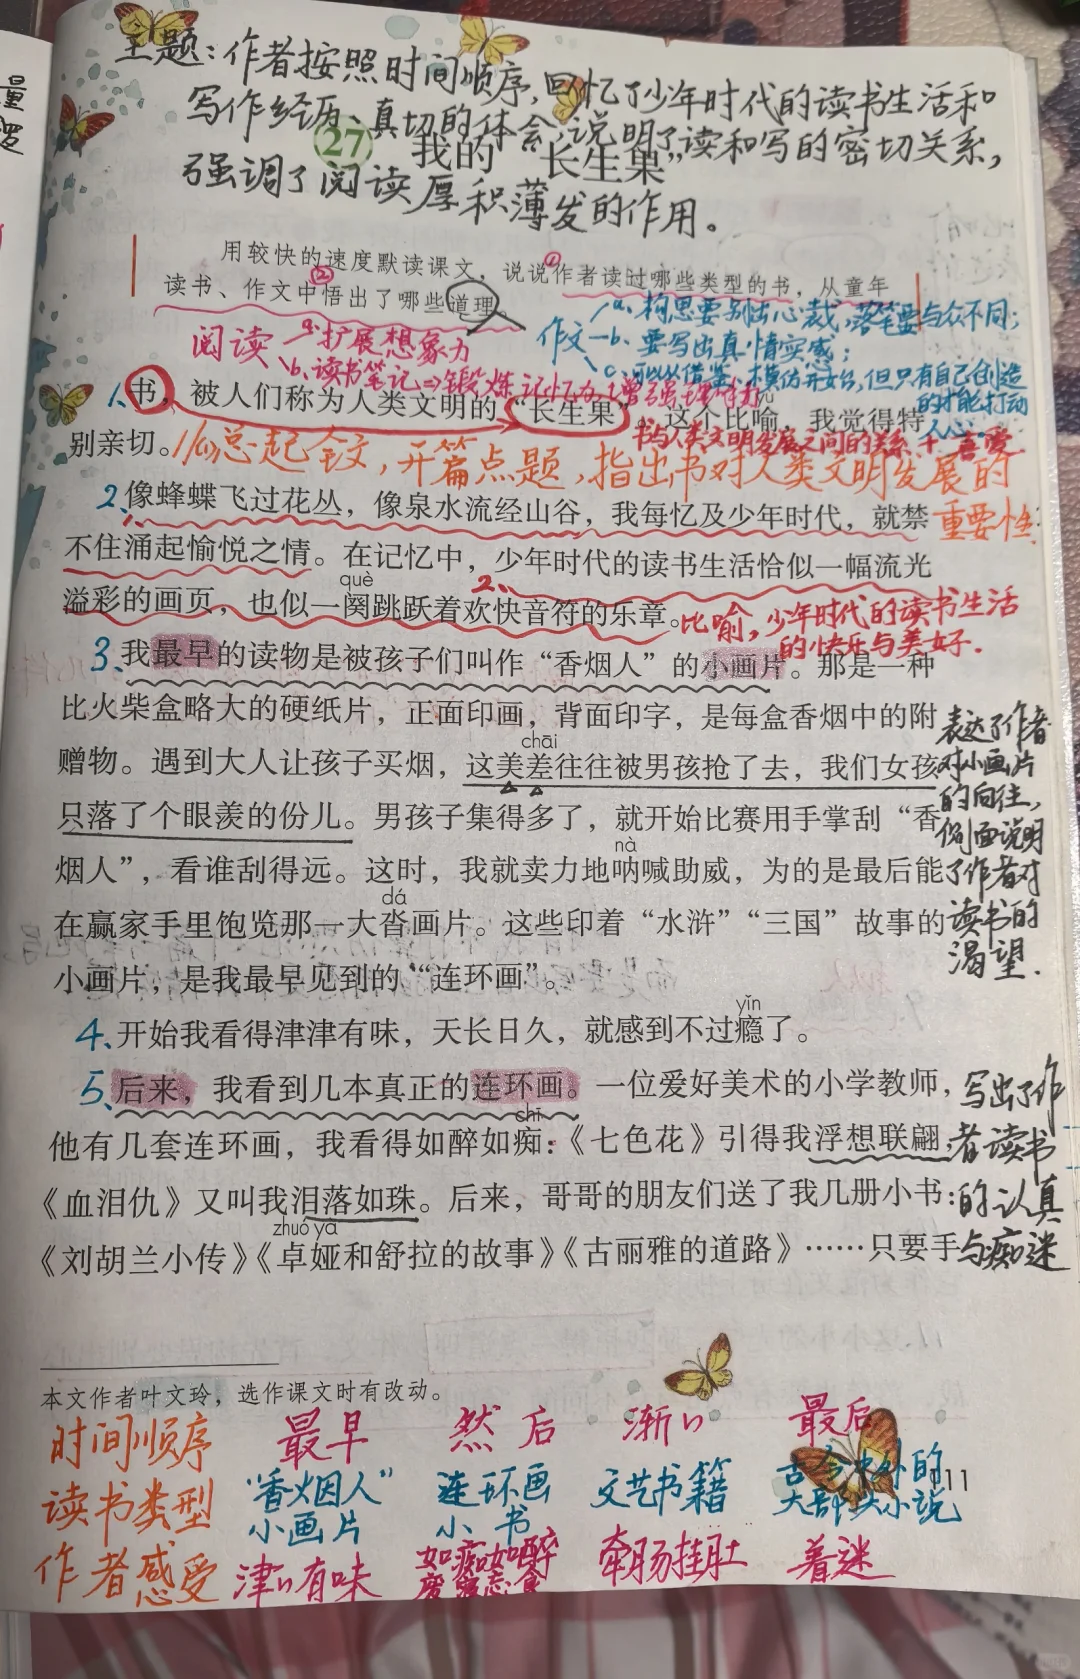 主题：作者按照时间顺序，回忆了少年时代的读书生活和
写作经历、真切的体会，说明了读和写的密切关系，
强调了阅读厚积薄发的作用。
27 我的“长生果”
用较快的速度默读课文，说说①作者读过哪些类型的书，从童年
读书、作文中②悟出了哪些道理。
阅读 a.扩展想象力
b.读书笔记⇒锻炼记忆力，增强理解力
作文 a.构思要别出心裁，落笔要与众不同；
b.要写出真情实感；
c.可以从借鉴、模仿开始，但只有自己创造
的才能打动
人心。
1、书，被人们称为人类文明的“长生果”。这个比喻，我觉得特
别亲切。
书与人类文明发展之间的关系 + 喜爱
总起全文，开篇点题，指出书对人类文明发展的
重要性。
2、像蜂蝶飞过花丛，像泉水流经山谷，我每忆及少年时代，就禁
不住涌起愉悦之情。在记忆中，少年时代的读书生活恰似一幅流光
què
溢彩的画页，也似一阕跳跃着欢快音符的乐章。
2、比喻，少年时代的读书生活
的快乐与美好.
3、我最早的读物是被孩子们叫作“香烟人”的小画片。那是一种
比火柴盒略大的硬纸片，正面印画，背面印字，是每盒香烟中的附
chāi
赠物。遇到大人让孩子买烟，这美差往往被男孩抢了去，我们女孩
只落了个眼羡的份儿。男孩子集得多了，就开始比赛用手掌刮“香
nà
烟人”，看谁刮得远。这时，我就卖力地呐喊助威，为的是最后能
dá
在赢家手里饱览那一大沓画片。这些印着“水浒”“三国”故事的
小画片，是我最早见到的“连环画”。
表达了作者
对小画片
的向往，
侧面说明
了作者对
读书的
渴望.
yǐn
4、开始我看得津津有味，天长日久，就感到不过瘾了。
5、后来，我看到几本真正的连环画。一位爱好美术的小学教师，
chī
他有几套连环画，我看得如醉如痴：《七色花》引得我浮想联翩，
《血泪仇》又叫我泪落如珠。后来，哥哥的朋友们送了我几册小书：
zhuó yà
《刘胡兰小传》《卓娅和舒拉的故事》《古丽雅的道路》……只要手
写出了作
者读书
的认真
与痴迷
本文作者叶文玲，选作课文时有改动。
时间顺序 最早 然后 渐渐 最后
读书类型 “香烟人” 连环画 文艺书籍 古今中外的
小画片 小书 大部头小说
111
作者感受 津津有味 如痴如醉 牵肠挂肚 着迷
废寝忘食